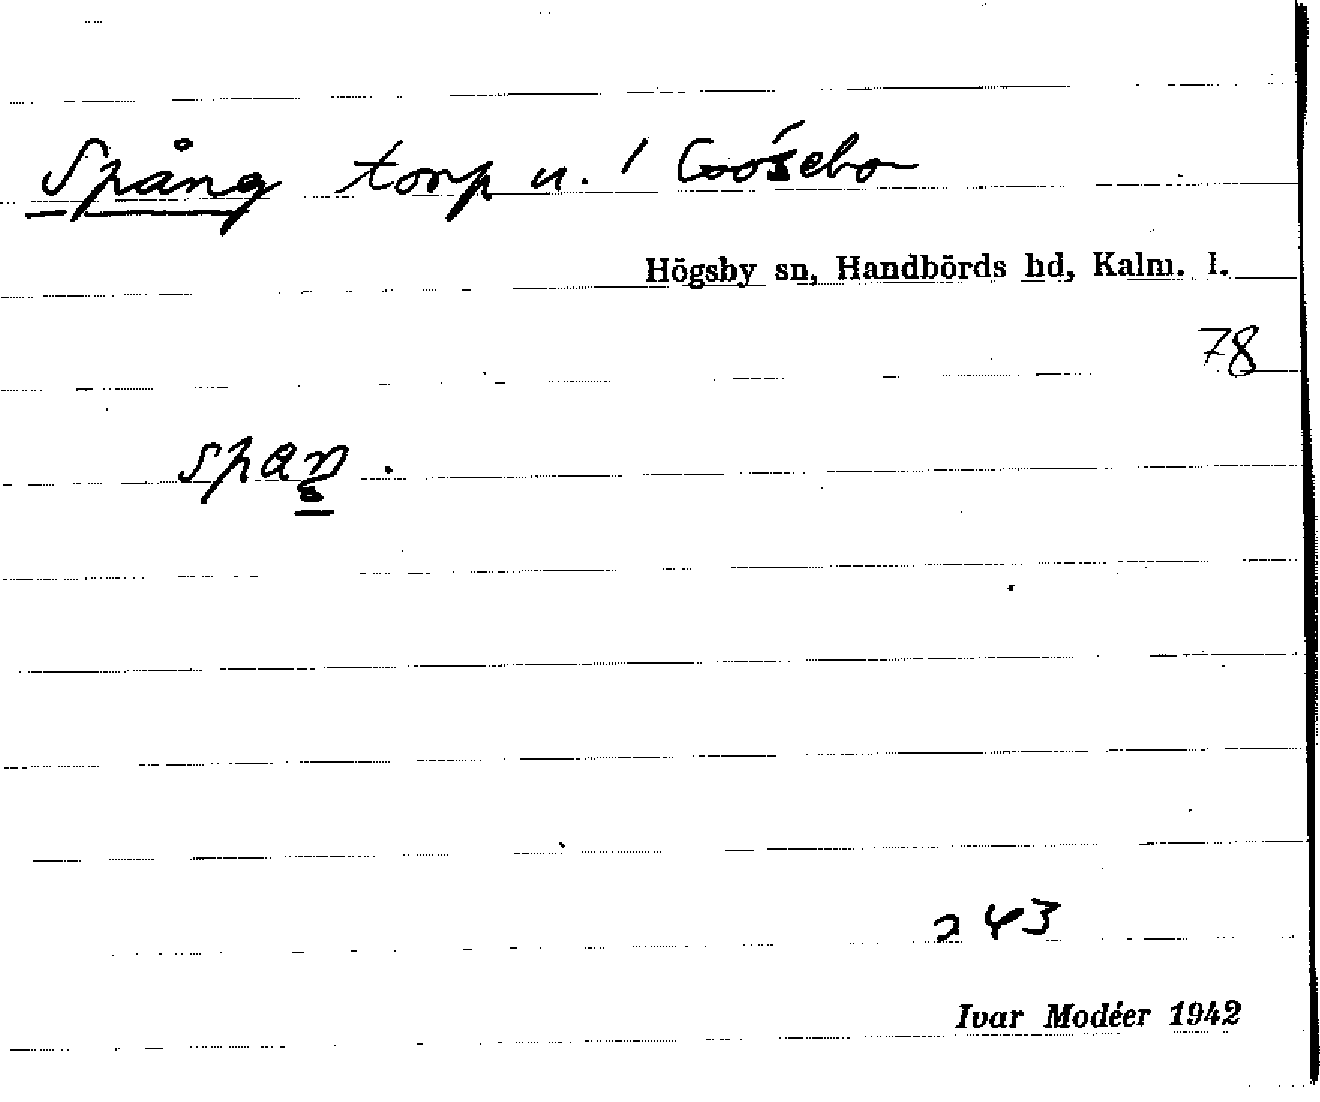 Spång torp u. / Gösebo
Högsby sn, Handbörds hd, Kalm. l.
78
spaŋ.
243
Ivar Modéer 1942